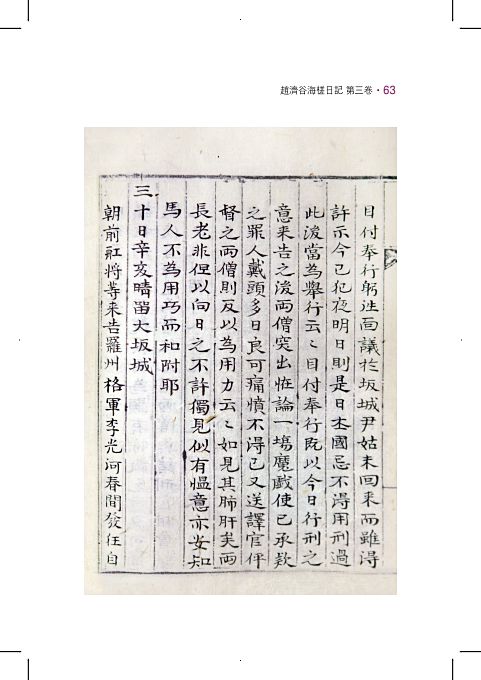 趙濟谷海槎日記 第三卷 · 63
目付奉行躬往面議於坂城尹姑未回来而雖得
許示今已犯夜明日則是日本國忌不得用刑過
此後當為擧行云云目付奉行既以今日行刑之
意来告之後兩僧突出恠論一塲魔戱使已承款
之罪人戴頭多日良可痛憤不得已又送譯官伻
督之兩僧則反以為用力云云如見其肺肝矣兩
長老非但以向日之不許獨見似有慍意亦安知
馬人不為用巧而和附耶
三十日辛亥晴留大坂城
朝前舡將等来告羅州格軍李光河春間發狂自